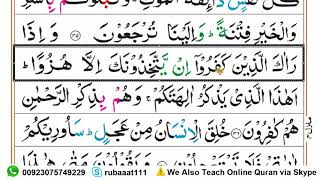 كُلُّ نَفْسٍ ذَآئِقَةُ الْمَوْتِ ؕ وَنَبْلُوْكُمْ بِالشَّرِّ
وَالْخَيْرِ فِتْنَةً ؕ وَاِلَيْنَا تُرْجَعُوْنَ ﴿۳۵﴾ وَاِذَا
رَاٰكَ الَّذِيْنَ كَفَرُوْۤا اِنْ يَّتَّخِذُوْنَكَ اِلَّا هُزُوًا ؕ
اَهٰذَا الَّذِيْ يَذْكُرُ اٰلِهَتَكُمْ ۚ وَهُمْ بِذِكْرِ الرَّحْمٰنِ
هُمْ كٰفِرُوْنَ ﴿۳۶﴾ خُلِقَ الْاِنْسَانُ مِنْ عَجَلٍ ؕ سَاُورِيْكُمْ
00923075749229 rubaaat111 We Also Teach Online Quran via Skype